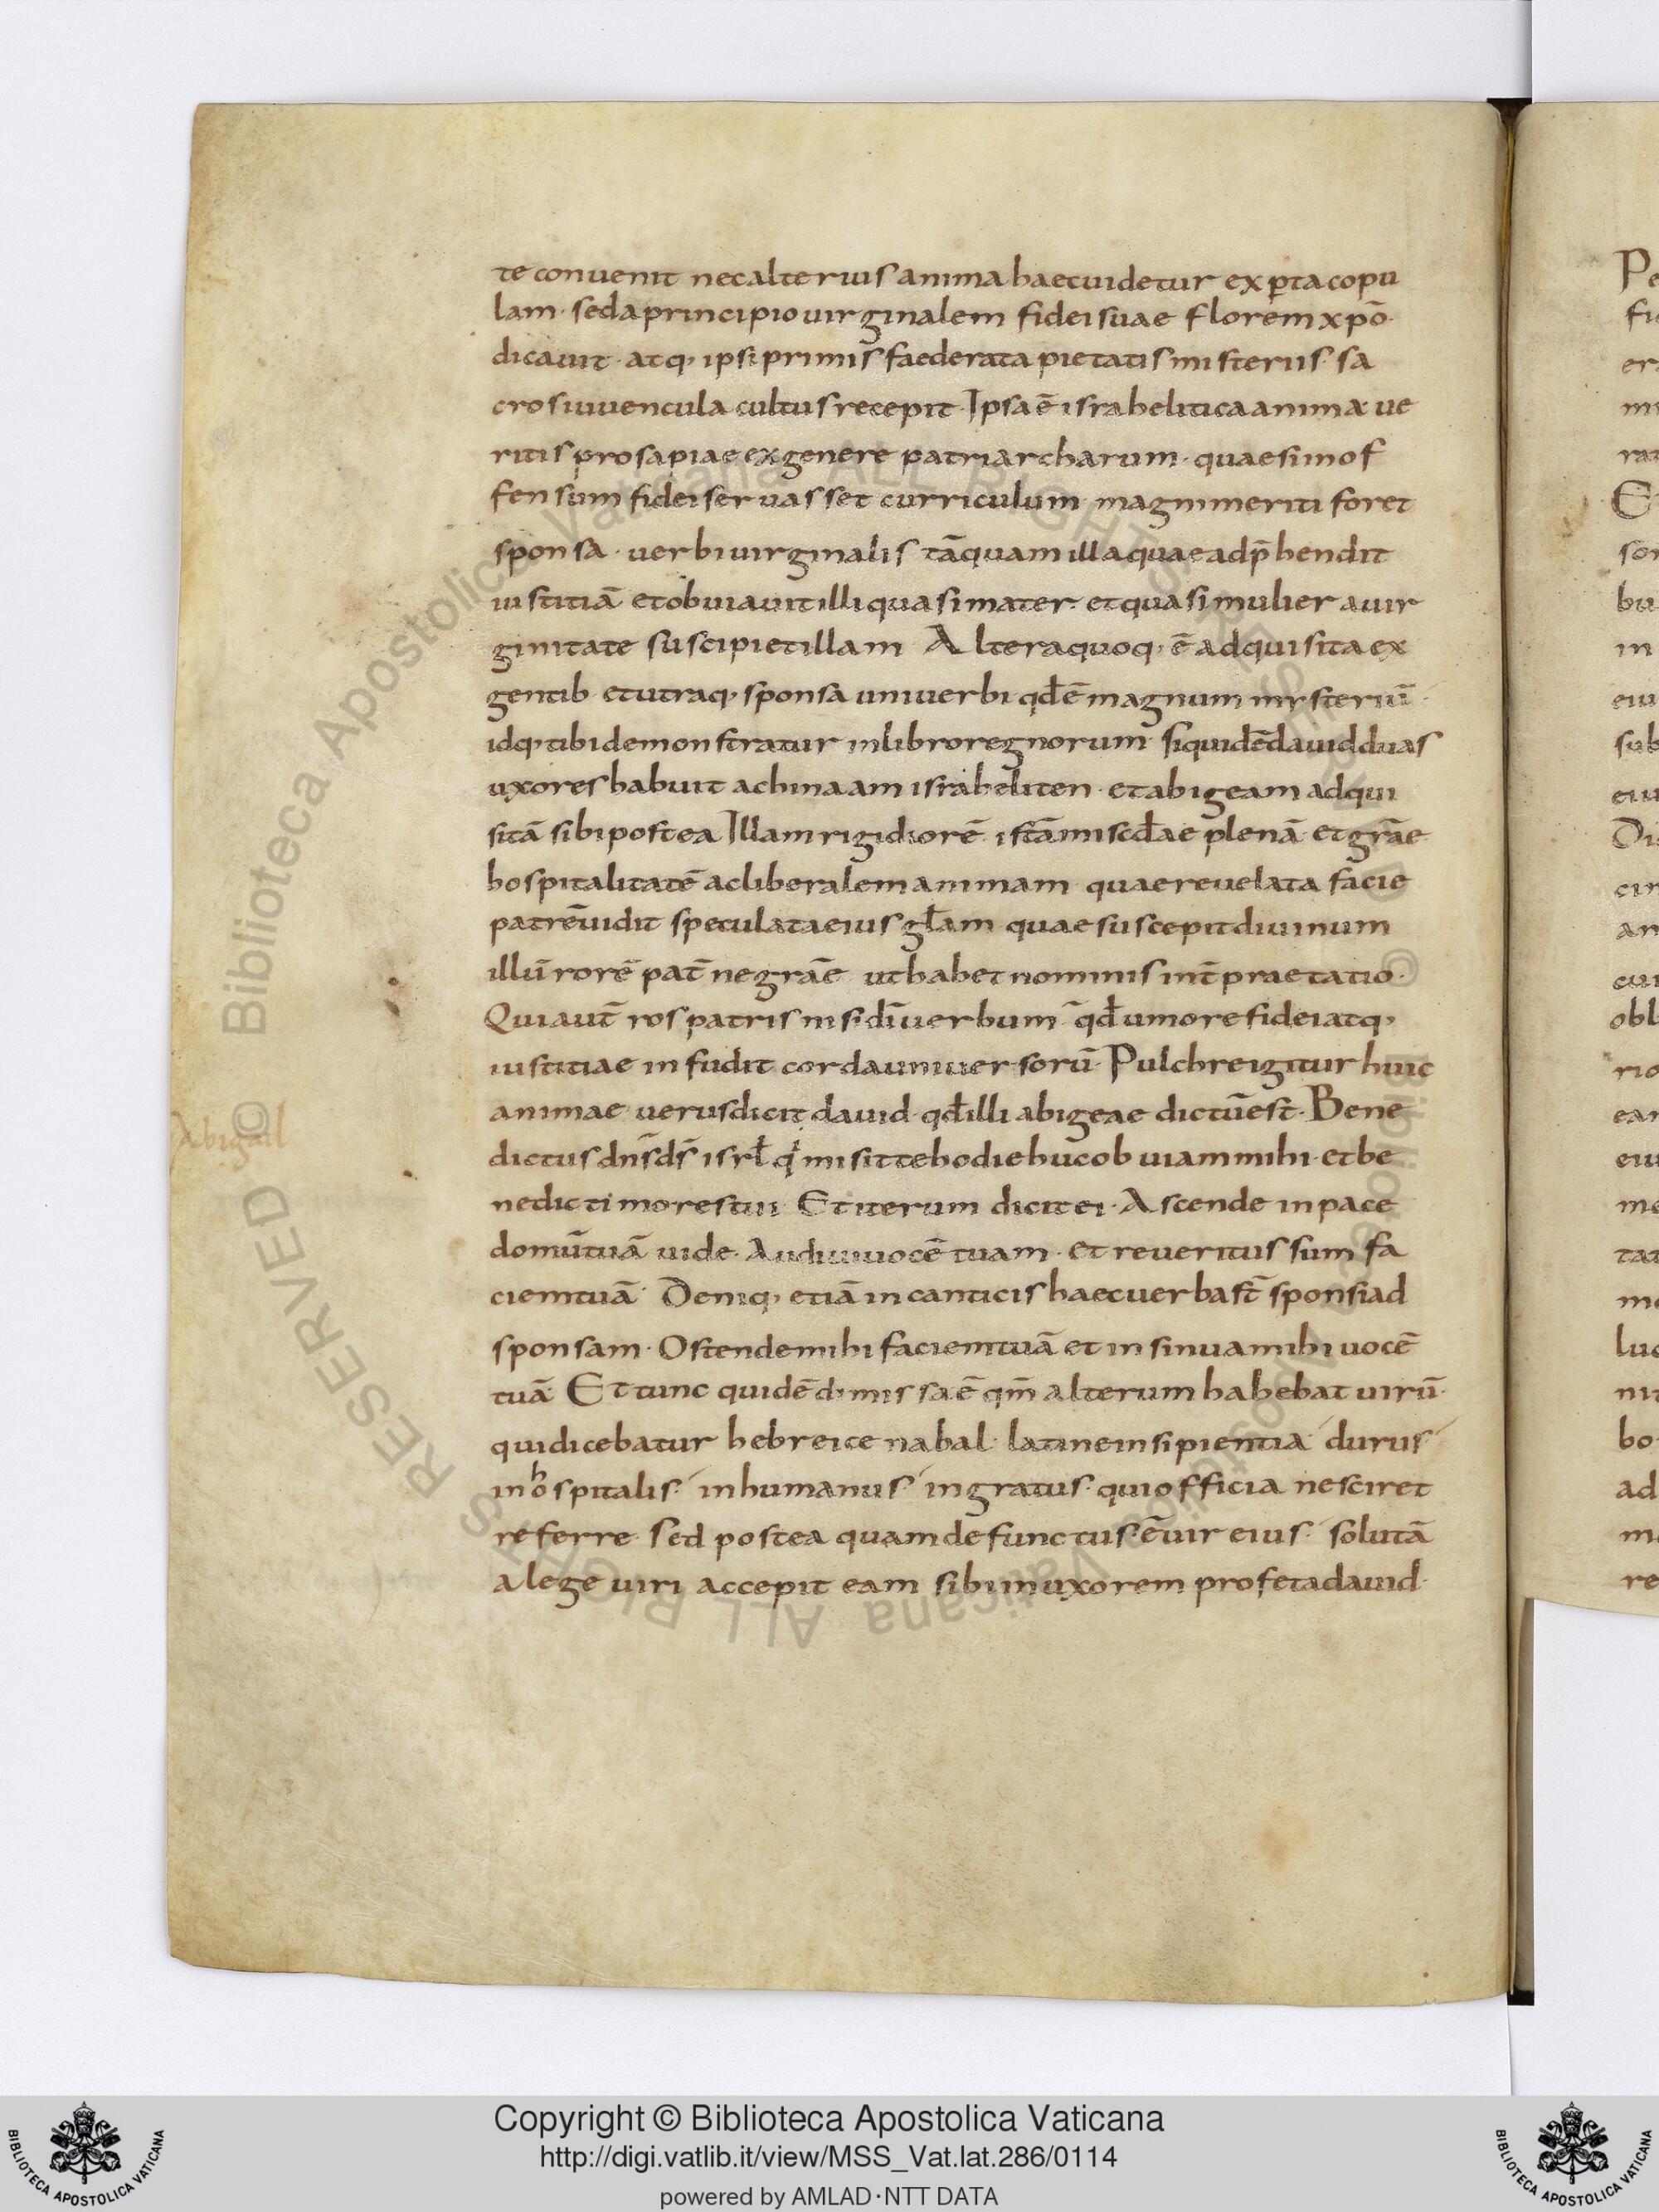 te conuenit nec alterius anima haec uidetur experta copu
lam · sed a principio uirginalem fidei suae florem xpō ·
dicauit · atq; ipsi primis faederata pietatis misteriis · sa
cros iuuencula cultus recepit · Ipsa ē israhelitica anima ue
ritis prosapiae ex genere patriarcharum · quae si inof
fensum fidei seruasset curriculum magni meriti foret
sponsa · uerbi uirginalis tāquam illa quae adp̄hendit
iustitiā et obuiauit illi quasi mater · et quasi mulier a uir
ginitate suscipiet illam Altera quoq; ē adquisita ex
gentib · et utraq; sponsa uni uerbi qđ ē magnum mysteriū ·
idq; tibi demonstratur in libro regnorum siquidē dauid duas
uxores habuit achinaam israheliten · et abigeam adqui
sitā sibi postea Illam rigidiorē istā miscđae plenā et grāe
hospitalitatē ac liberalem animam quae reuelata facie
patrē uidit speculata eius glam quae suscepit diuinum
illū rorē pat̄ne grāe ut habet nominis int̄praetatio ·
Qui aut̄ ros patris nisi dī uerbum qđ umore fidei atq;
iustitiae infudit corda uniuersorū · Pulchre igitur huic
animae uerus dicit dauid · qđ illi abigeae dictū est · Bene
dictus dn̄s ds̄ isrł qi misit te hodie huc obuiam mihi · et be
nedicti mores tui Et iterum dicit ei · Ascende in pace
domū tuā uide · Audiui uocē tuam · et reueritus sum fa
ciem tuā · Deniq; etiā in canticis haec uerba st̄ sponsi ad
sponsam · Ostende mihi faciem tuā et insinua mihi uocē
tuā · Et tunc quidē dimissa ē qm̄ alterum habebat uirū ·
qui dicebatur hebreice nabal · latine insipientia durus
inhospitalis · inhumanus ingratus · qui officia nesciret
referre · Sed postea quam defunctus ē uir eius · solutā
a lege uiri accepit eam sibi in uxorem profeta dauid ·
Abigail
Copyright © Biblioteca Apostolica Vaticana
http://digi.vatlib.it/view/MSS_Vat.lat.286/0114
powered by AMLAD·NTT DATA
BIBLIOTECA APOSTOLICA VATICANA
BIBLIOTECA APOSTOLICA VATICANA